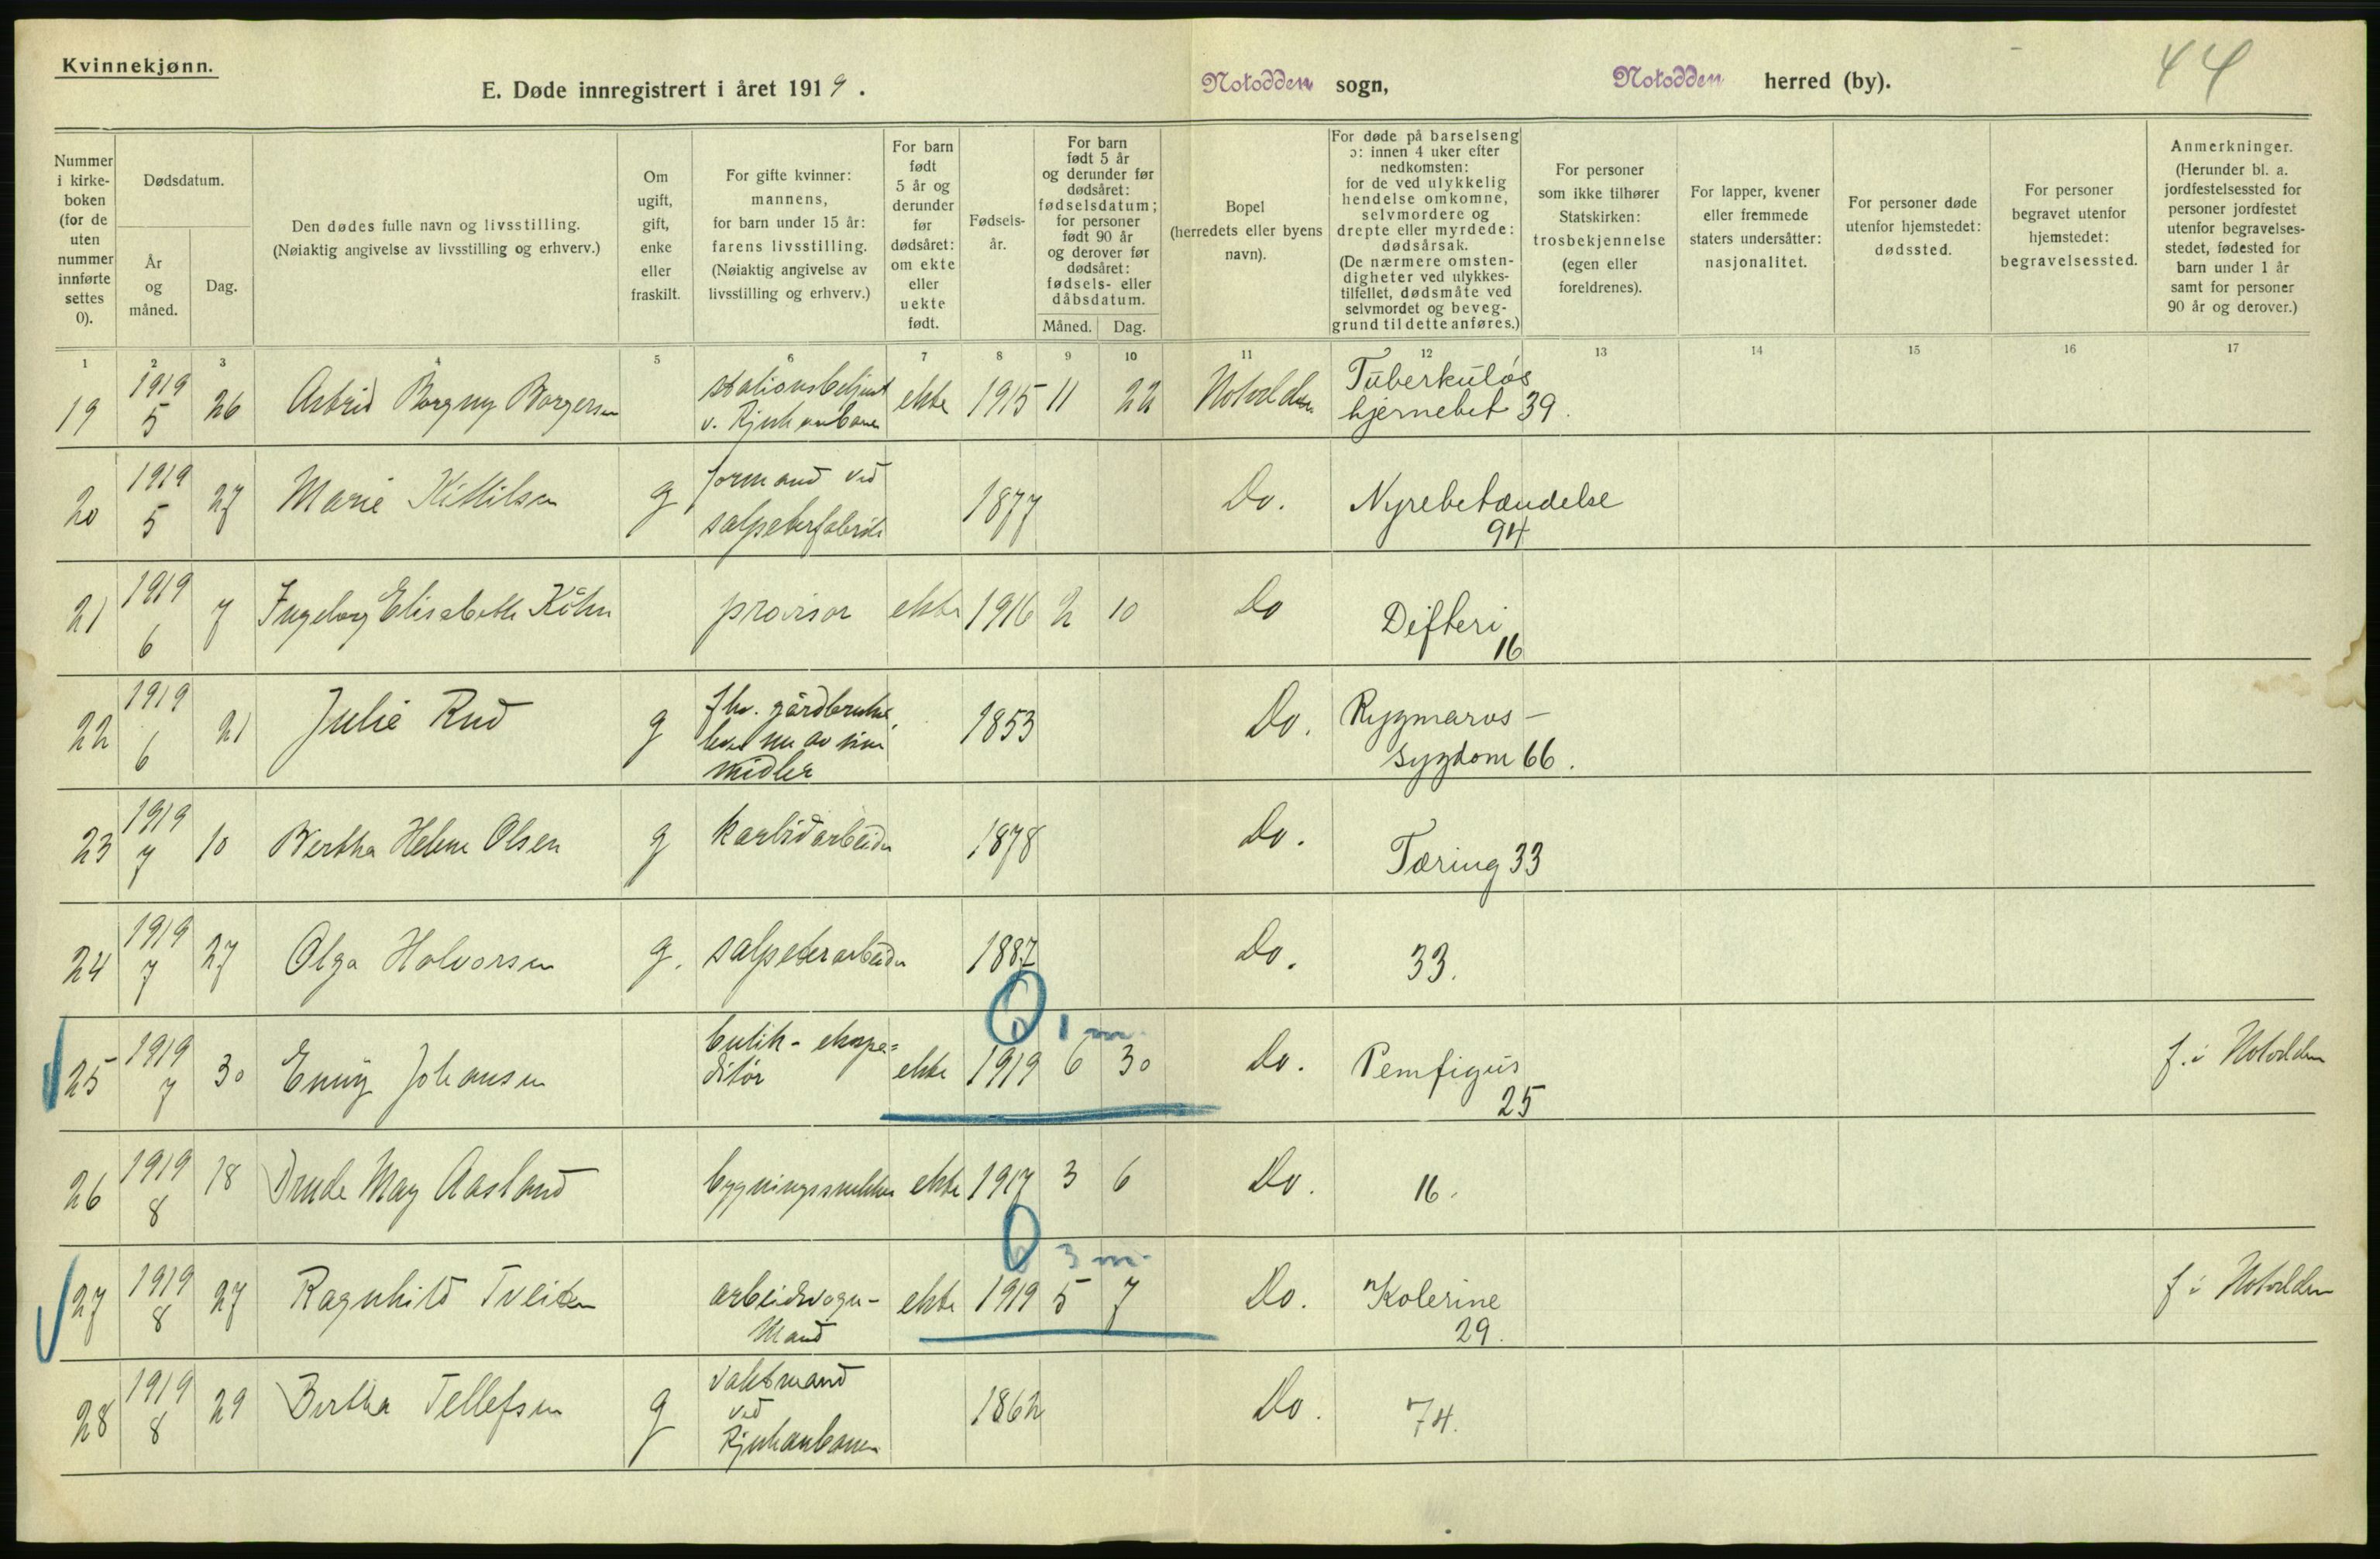 Kvinnekjønn.
E. Døde innregistrert i året 1919.
Notodden sogn,
Notodden herred (by).
44
Nummer i kirke-boken (for de uten nummer innførte settes 0).
Dødsdatum.
År og måned.
Dag.
Den dødes fulle navn og livsstilling.
(Nøiaktig angivelse av livsstilling og erhverv.)
Om ugift, gift, enke eller fraskilt.
For gifte kvinner: mannens, for barn under 15 år: farens livsstilling. (Nøiaktig angivelse av livsstilling og erhverv.)
For barn født 5 år og derunder før dødsåret: om ekte eller uekte født.
Fødsels-år.
For barn født 5 år og derunder før dødsåret: fødselsdatum; for personer født 90 år og derover før dødsåret: fødsels- eller dåbsdatum.
Måned. Dag.
Bopel (herredets eller byens navn).
For døde på barselseng ɔ: innen 4 uker efter nedkomsten: for de ved ulykkelig hendelse omkomne, selvmordere og drepte eller myrdede: dødsårsak. (De nærmere omsten-digheter ved ulykkes-tilfellet, dødsmåte ved selvmordet og beveg-grund til dette anføres.)
For personer som ikke tilhører Statskirken: trosbekjennelse (egen eller foreldrenes).
For lapper, kvener eller fremmede staters undersåtter: nasjonalitet.
For personer døde utenfor hjemstedet: dødssted.
For personer begravet utenfor hjemstedet: begravelsessted.
Anmerkninger. (Herunder bl. a. jordfestelsessted for personer jordfestet utenfor begravelses-stedet, fødested for barn under 1 år samt for personer 90 år og derover.)
1 2 3 4 5 6 7 8 9 10 11 12 13 14 15 16 17
19 1919 5 26 Astrid Borgny Borgersen stationsbetjent v. Rjukanbanen ekte 1915 11 22 Notodden Tuberkuløs hjernebet 39.
20 1919 5 27 Marie Kittilsen g formand ved salpeterfabrik 1877 Do. Nyrebetændelse 94
21 1919 6 7 Ingeborg Elisabeth Köhn provisor ekte 1916 2 10 Do Difteri 16
22 1919 6 21 Julie Rud g fhv. gårdbruker, lever nu av sine midler 1853 Do. Rygmarvs-sygdom 66.
23 1919 7 10 Bertha Helene Olsen g karbidarbeider 1878 Do. Tæring 33
24 1919 7 27 Olga Halvorsen g. salpeterarbeider 1887 Do. 33.
0 1 m.
25 1919 7 30 Enny Johansen butik-ekspe=ditør ekte 1919 6 30 Do. Pemfigus 25 f. i Notodden
26 1919 8 18 Drude May Aasland bygningssnekker ekte 1917 3 6 Do. 16.
0 3 m.
27 1919 8 27 Ragnhild Tveiten arbeidsvogn-mand ekte 1919 5 7 Do. Kolerine 29. f i Notodden
28 1919 8 29 Bertha Tellefsen g vaktmand ved Rjukanbanen 1862 Do. 74.